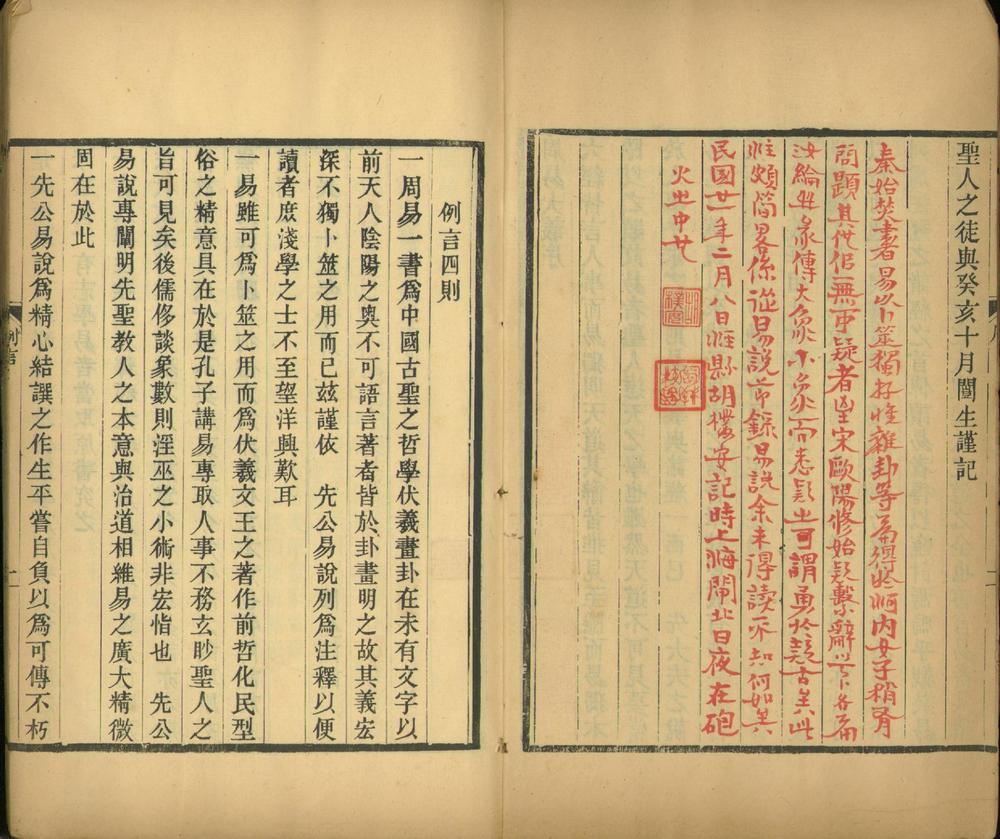 聖人之徒與癸亥十月闓生謹記
秦始焚書易以卜筮獨存惟雜卦等篇得於河内女子稍有
問題其他佀無可疑者也至宋歐陽修始疑繫辭以下各篇
汝綸幷彖傳大象小象而悉疑之可謂勇於疑古矣此
惟頗簡畧係從易說節錄易說余未得讀不知何如矣
民國廿一年二月八日涇縣胡樸安記時上海閘北日夜在砲
火之中也
例言四則
一周易一書爲中國古聖之哲學伏羲畫卦在未有文字以
前天人陰陽之奥不可語言著者皆於卦畫明之故其義宏
深不獨卜筮之用而已兹謹依 先公易說列爲注釋以便
讀者庶淺學之士不至望洋興歎耳
一易雖可爲卜筮之用而爲伏羲文王之著作前哲化民型
俗之精意具在於是孔子講易專取人事不務玄眇聖人之
旨可見矣後儒侈談象數則淫巫之小術非宏恉也 先公
易說專闡明先聖教人之本意與治道相維易之廣大精微
固在於此
一先公易說爲精心結譔之作生平嘗自負以爲可傳不朽
例言
二